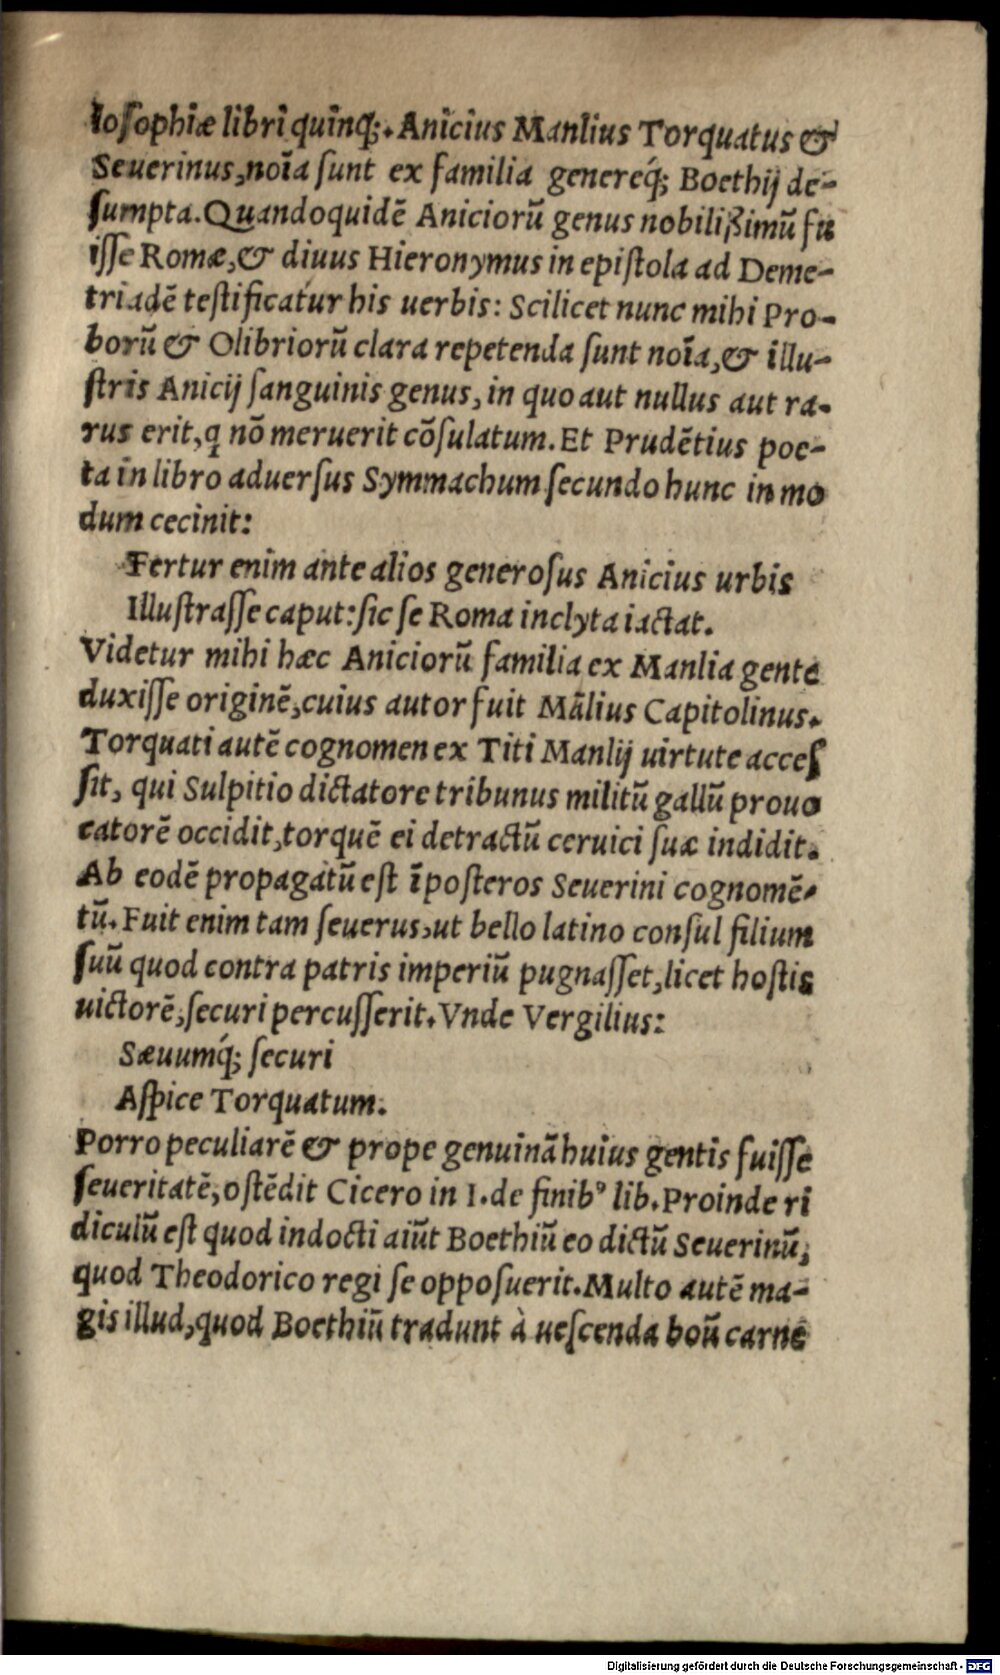 losophiæ libri quinq́;. Anicius Manlius Torquatus &
Seuerinus, noīa sunt ex familia genereq́; Boethij de-
sumpta. Quandoquidē Aniciorū genus nobilißimū fu
isse Romæ, & diuus Hieronymus in epistola ad Deme-
triadē testificatur his uerbis: Scilicet nunc mihi Pro-
borū & Olibriorū clara repetenda sunt noīa, & illu-
stris Anicij sanguinis genus, in quo aut nullus aut ra-
rus erit, q nō meruerit cōsulatum. Et Prudētius poe-
ta in libro aduersus Symmachum secundo hunc in mo
dum cecinit:
Fertur enim ante alios generosus Anicius urbis
Illustrasse caput: sic se Roma inclyta iactat.
Videtur mihi hæc Aniciorū familia ex Manlia gente
duxisse originē, cuius autor fuit Mālius Capitolinus.
Torquati autē cognomen ex Titi Manlij uirtute acces
sit, qui Sulpitio dictatore tribunus militū gallū prouo
catorē occidit, torquē ei detractū ceruici suæ indidit.
Ab eodē propagatū est ī posteros Seuerini cognomē-
tū. Fuit enim tam seuerus, ut bello latino consul filium
suū quod contra patris imperiū pugnasset, licet hostis
uictorē, securi percusserit. Vnde Vergilius:
Sæuumq́; securi
Aspice Torquatum.
Porro peculiarē & prope genuinā huius gentis fuisse
seueritatē, ostēdit Cicero in I. de finibꝰ lib. Proinde ri
diculū est quod indocti aiūt Boethiū eo dictū Seuerinū,
quod Theodorico regi se opposuerit. Multo autē ma-
gis illud, quod Boethiū tradunt à uescenda boū carne
Digitalisierung gefördert durch die Deutsche Forschungsgemeinschaft - DFG